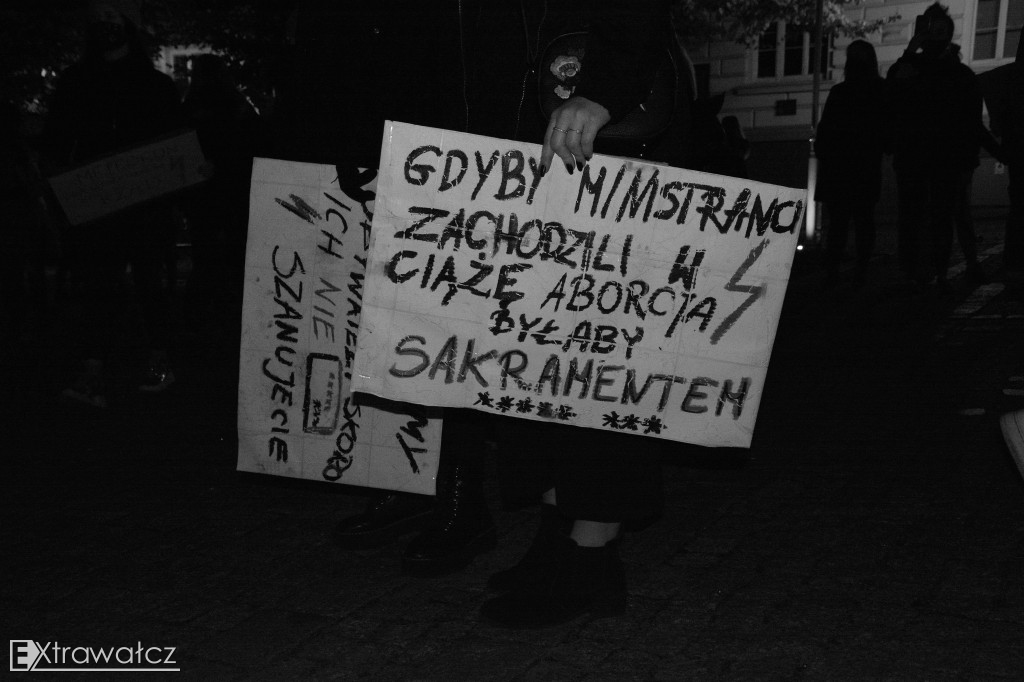 GDYBY MINISTRANCI
ZACHODZILI W
CIĄŻĘ ABORCJA
BYŁABY
SAKRAMENTEM
***** ***
ICH NIE
SZANUJECIE
SKORO
EXtrawałcz